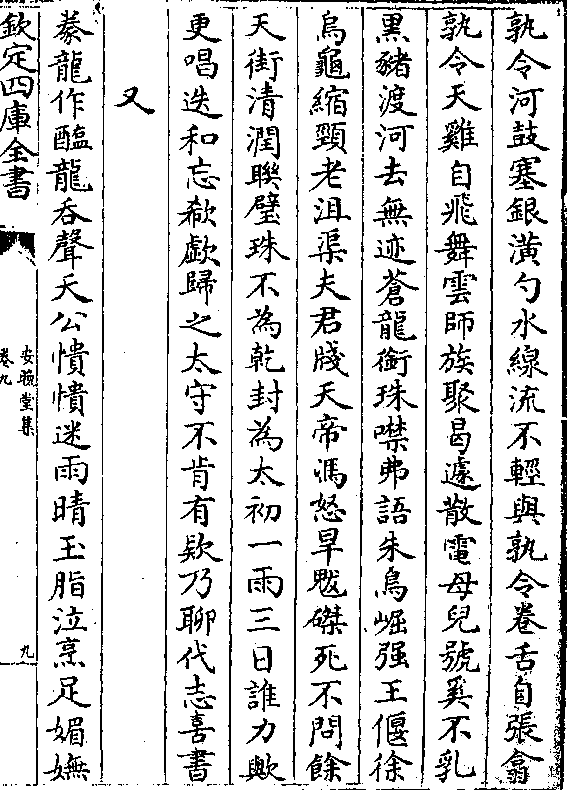 孰令河鼓塞銀潢勺水線流不輕與孰令卷舌自張翕
孰令天雞自飛舞雲師族聚曷遽散電母兒號奚不乳
黑豬渡河去無迹蒼龍銜珠噤弗語朱鳥崛强王偃徐
烏龜縮頸老沮渠夫君牋天帝馮怒旱魃磔死不問餘
天街清潤聯璧珠不為乾封為太初一雨三日誰力歟
更唱迭和忘欷歔歸之太守不肯有欵乃聊代志喜書
又
豢龍作醢龍呑聲天公憒憒迷雨晴玉脂泣烹足媚嫵
欽定四庫全書
安雅堂集
卷九
九